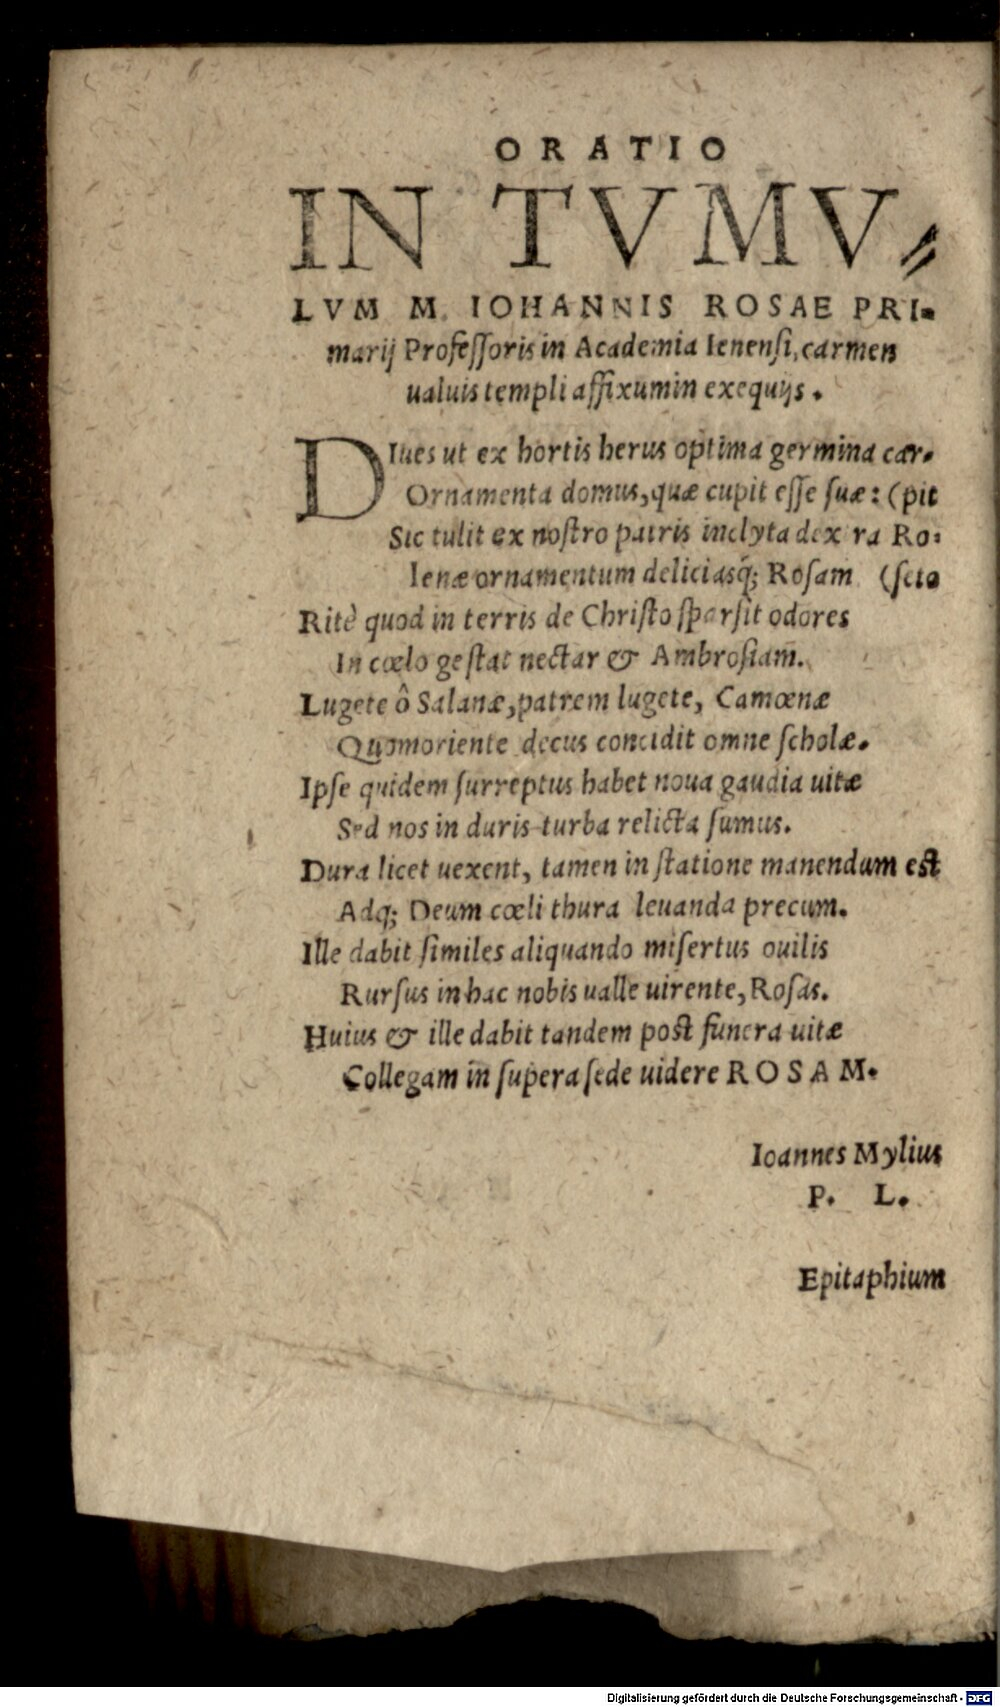 ORATIO
IN TVMV⸗
LVM M. IOHANNIS ROSAE PRI-
marij Professoris in Academia Ienensi, carmen
ualuis templi affixum in exequijs.
DIues ut ex hortis herus optima germina car-
Ornamenta domus, quæ cupit esse suæ: (pit
Sic tulit ex nostro patris inclyta dex ra Ro:
Ienæ ornamentum deliciasq́; Rosam (seto
Ritè quod in terris de Christo sparsit odores
In cœlo gestat nectar & Ambrosiam.
Lugete ô Salanæ, patrem lugete, Camœnæ
Quo moriente decus concidit omne scholæ.
Ipse quidem surreptus habet noua gaudia uitæ
Sed nos in duris turba relicta sumus.
Dura licet uexent, tamen in statione manendum est
Adq; Deum cœli thura leuanda precum.
Ille dabit similes aliquando misertus ouilis
Rursus in hac nobis ualle uirente, Rosas.
Huius & ille dabit tandem post funera uitæ
Collegam in supera sede uidere ROSAM.
Ioannes Mylius
P. L.
Epitaphium
Digitalisierung gefördert durch die Deutsche Forschungsgemeinschaft - DFG